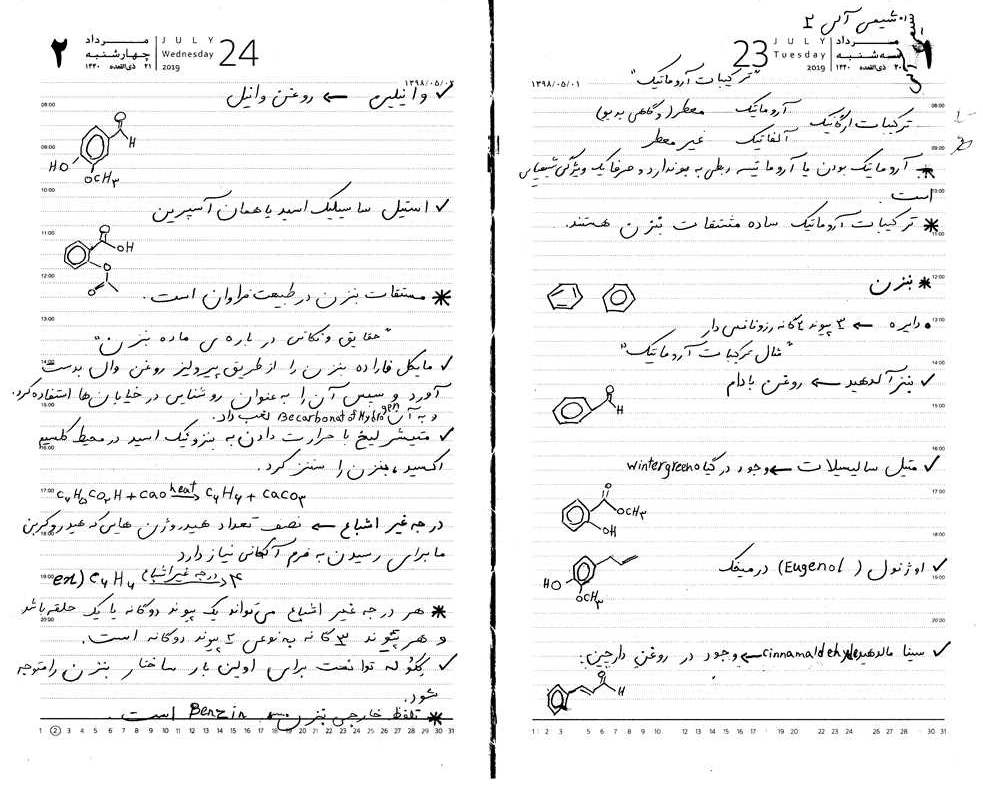 شیمی آلی ۲
23
JULY
Tuesday
2019
مرداد
سه‌شنبه
۲۰ ذی‌القعده ۱۴۴۰
۱۳۹۸/۰۵/۰۱
"ترکیبات آروماتیک"
ترکیبات ارگانیک
آروماتیک معطر (و گاهی بد بو)
آلفاتیک غیر معطر
* آروماتیک بودن یا آروماتیسه ربطی به بو ندارد و صرفا یک ویژگی شیمیایی
است.
* ترکیبات آروماتیک ساده مشتقات بنزن هستند.
* بنزن
• دایره ← ۳ پیوند ۲ گانه رزونانس دار
"مثال ترکیبات آروماتیک"
✓ بنزآلدهید ← روغن بادام
O
H
✓ متیل سالیسیلات ← وجود در گیاه wintergreen
O
OCH۳
OH
✓ اوژنول (Eugenol) در میخک
HO
OCH۳
✓ سینامالدهید cinnamaldehyde ← وجود در روغن دارچین.
O
H
08:00
09:00
10:00
11:00
12:00
13:00
14:00
15:00
16:00
17:00
18:00
19:00
20:00
1 2 3 5 6 7 8 9 10 12 13 14 15 16 17 19 20 22 23 24 26 28 30 31
۲
مرداد
چهارشنبه
۲۱ ذی‌القعده ۱۴۴۰
JULY
Wednesday
2019
24
۱۳۹۸/۰۵/۰۲
✓ وانیلین ← روغن وانیل
O
H
HO
OCH۳
✓ استیل سالسیلیک اسید یا همان آسپرین
O
OH
O
O
* مشتقات بنزن در طبیعت فراوان است.
"حقایق و نکاتی در باره ی ماده بنزن"
✓ مایکل فاراده بنزن را از طریق پیرولیز روغن وال بدست
آورد و سپس آن را به عنوان روشنایی در خیابان‌ها استفاده کرد.
و به آن Becarbonat of Hydrogen لقب داد.
✓ میتشرلیخ با حرارت دادن به بنزوئیک اسید در محیط کلسیم
اکسید، بنزن را سنتز کرد.
C۶H۵CO۲H + CaO heat→ C۶H۶ + CaCO۳
درجه غیر اشباع ← نصف تعداد هیدروژن هایی که هیدروکربن
ما برای رسیدن به فرم آلکانی نیاز دارد
ex) C۶H۶ درجه غیر اشباع→ ۴
* هر درجه غیر اشباع می‌تواند یک پیوند دوگانه یا یک حلقه باشد
و هر پیوند ۳ گانه به نوعی ۲ پیوند دوگانه است.
✓ ککوله توانست برای اولین بار ساختار بنزن را متوجه
شود.
* تلفظ خارجی بنزن ← Benzin است.
08:00
09:00
10:00
11:00
12:00
13:00
14:00
15:00
16:00
17:00
18:00
19:00
20:00
1 2 3 4 5 6 7 8 9 10 11 12 13 14 15 16 17 18 19 20 21 22 23 24 25 26 27 28 29 30 31